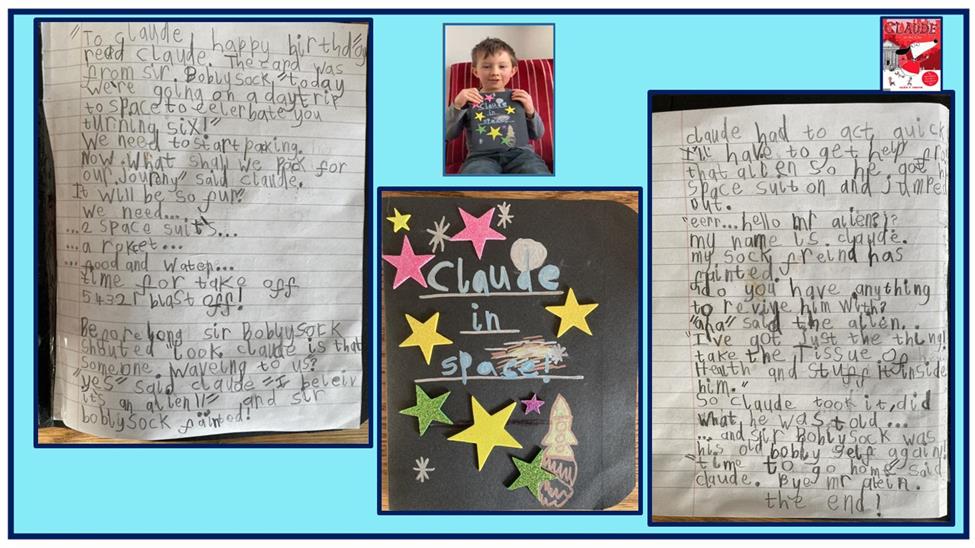 "To Claude happy birthday
read Claude. The card was
from sir. Boblysock "today
we're going on a daytrip
to space to celerbate you
turning six!"
We need to start paking.
Now what shall we pack for
our Journy" said claude.
It will be so fun"
we need...
...2 space suits...
...a rocket...
...food and water...
time for take off
54321 blast off!
Before long sir BoblySock
shouted look claude is that
someone waveing to us?
"yes" said claude "I beleiv
it's an alien!!" and sir
boblysock fainted!
Claude
in
space!
CLAUDE
claude had to act quick
I'll have to get help from
that alien So he got h
space suit on and jumped
out.
"eerr...hello mr alien?!?
my name is claude.
my sock freind has
fainted.
do you have anything
to revive him with?
"aha" said the alien..
I've got just the thing!
take the Tissue of
Health and stuff it inside
him."
So Claude took it, did
what he was told...
...and sir boblysock was
his old bobly self again!
"time to go home" said
claude. Bye mr alein.
the end!